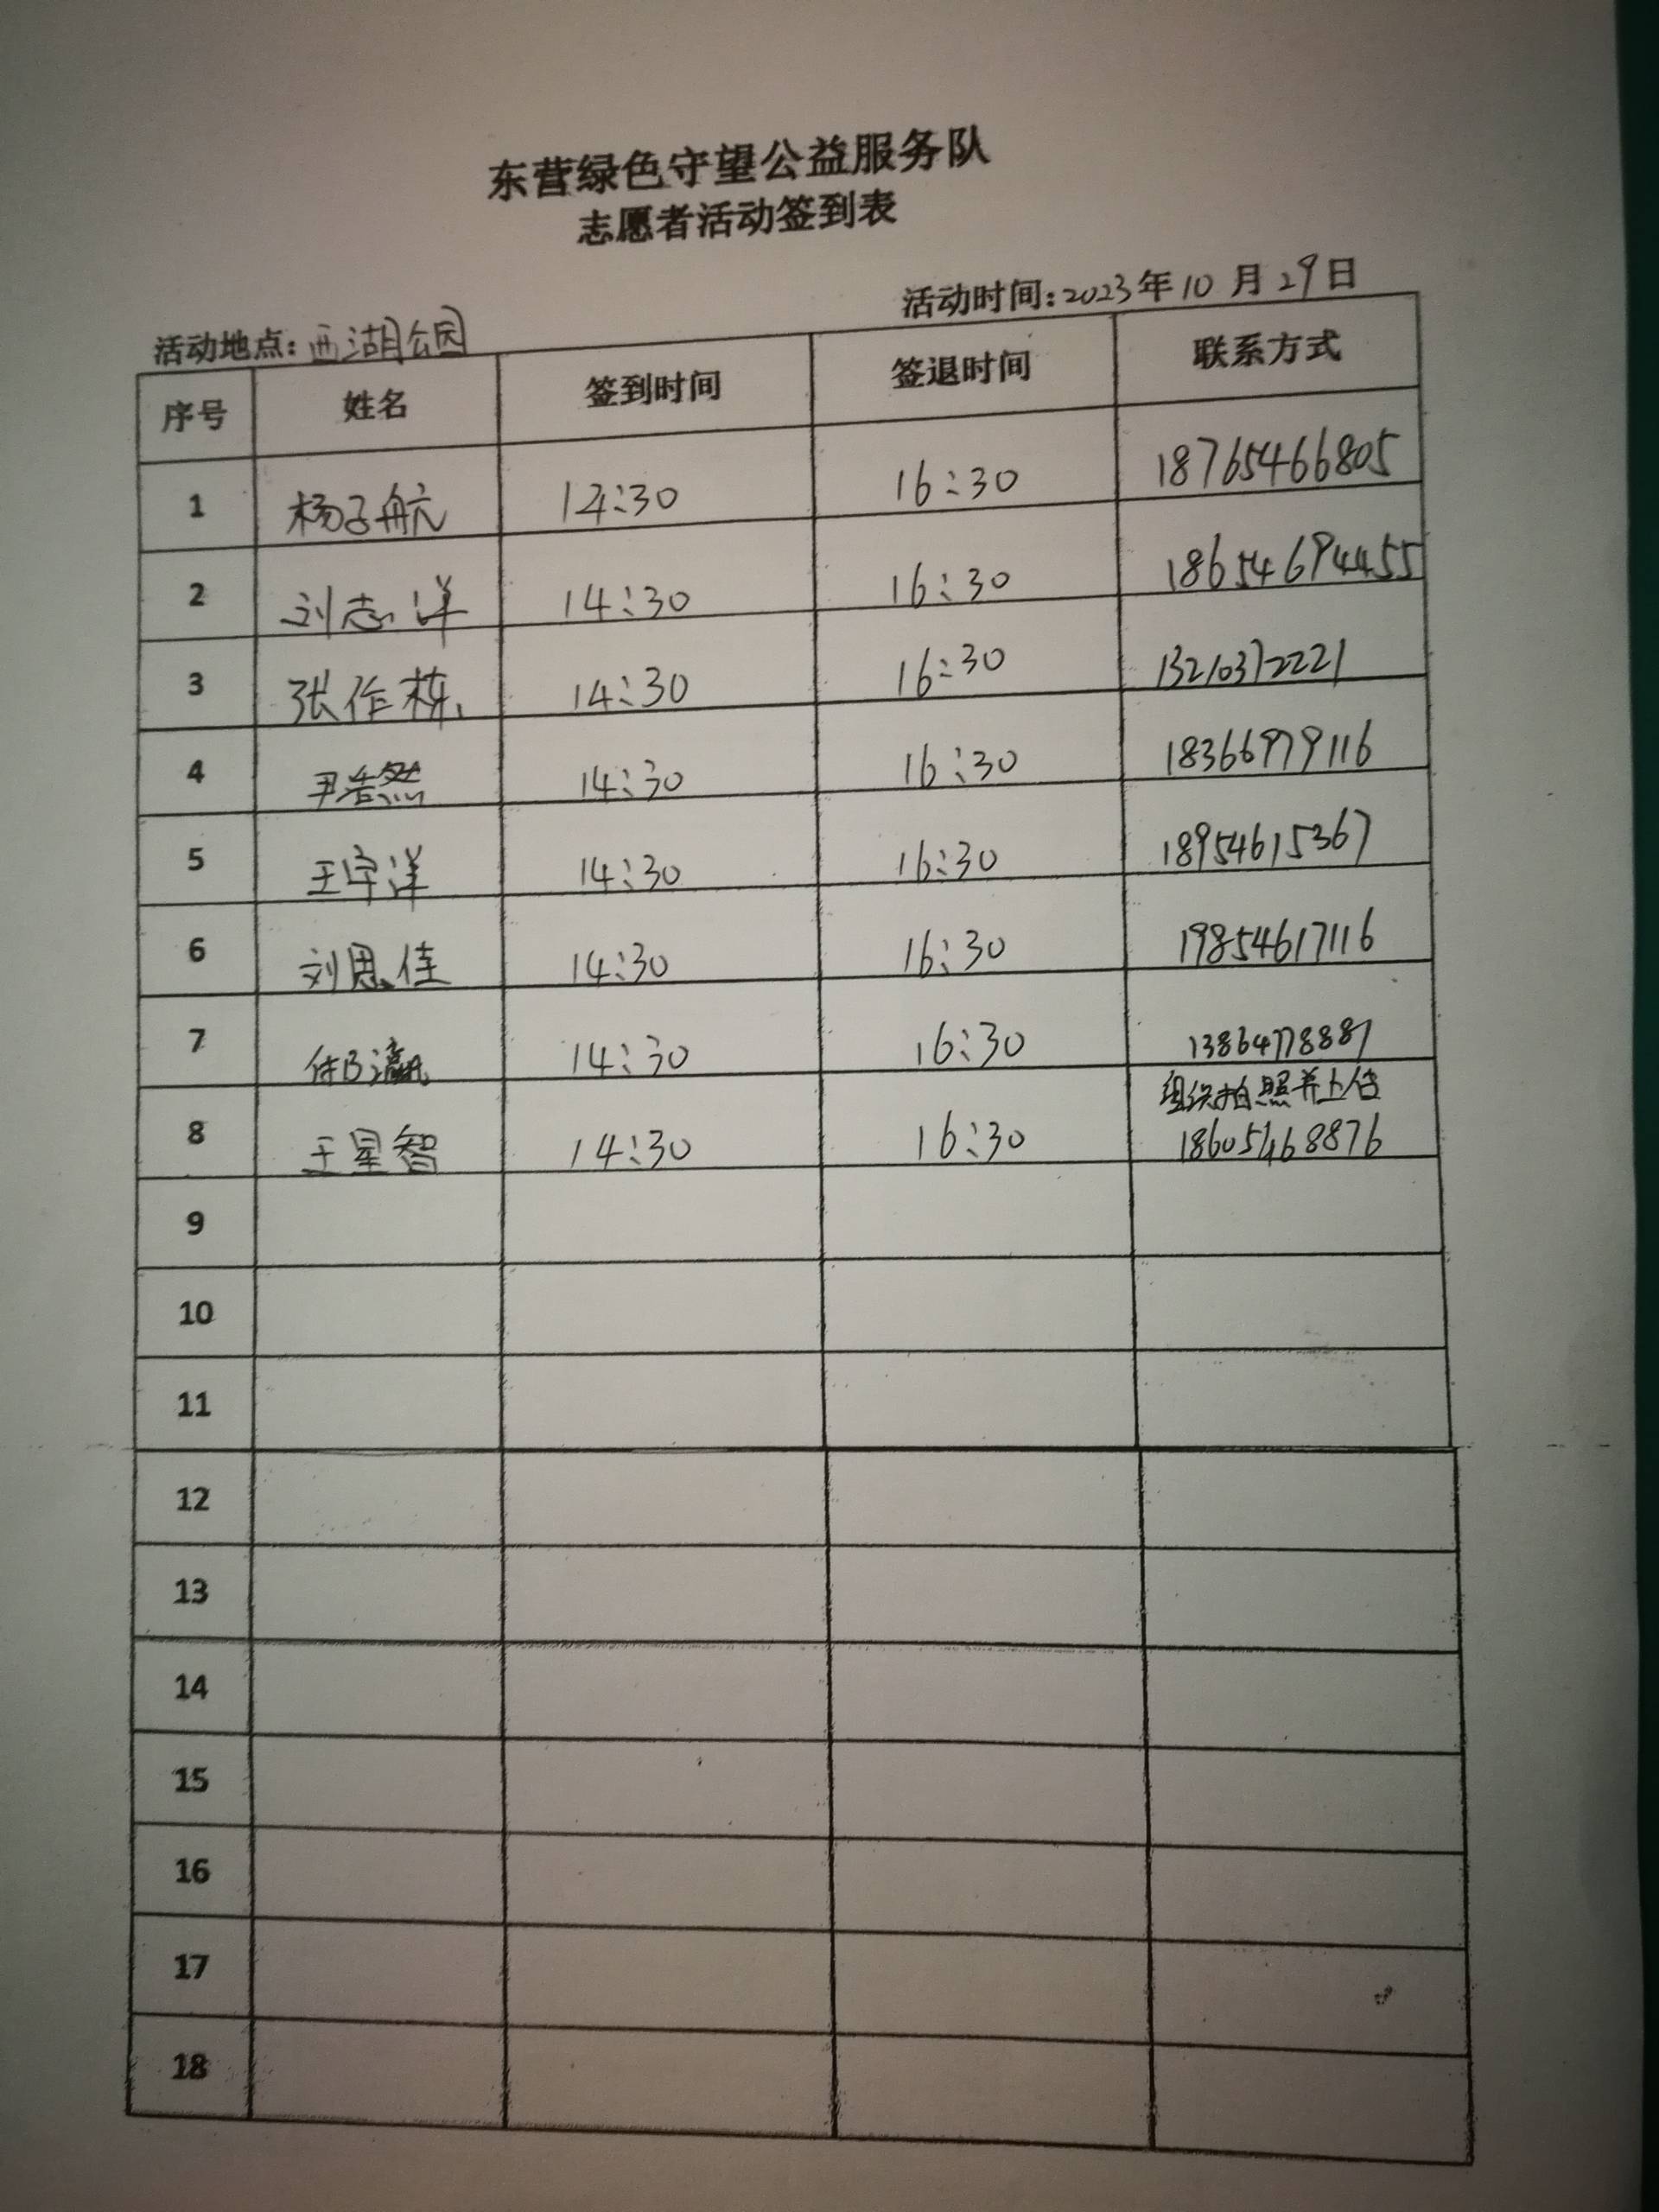 东营绿色守望公益服务队
志愿者活动签到表
活动时间:2023年10月29日
活动地点:西湖公园
序号 姓名 签到时间 签退时间 联系方式
1 杨子航 14:30 16:30 18765466805
2 刘志洋 14:30 16:30 18654694455
3 张作栋 14:30 16:30 13210372221
4 尹浩然 14:30 16:30 18366979116
5 王宇洋 14:30 16:30 18954615367
6 刘思佳 14:30 16:30 19854617116
7 14:30 16:30 13864778887
组织拍照并上传
8 王星智 14:30 16:30 18605468876
9
10
11
12
13
14
15
16
17
18